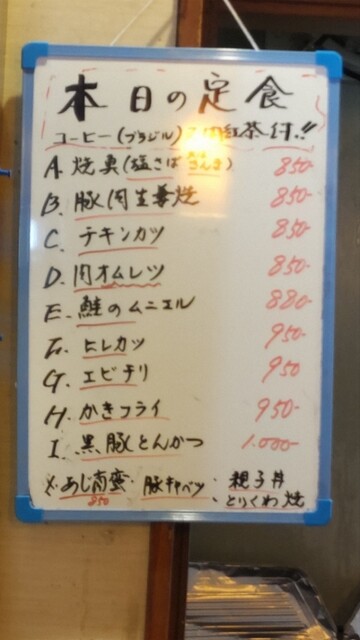 本日の定食
コーヒー(ブラジル) 紅茶付!!
A. 焼魚(塩さば さんま) 850-
B. 豚肉生姜焼 850-
C. チキンカツ 850-
D. 肉オムレツ 850-
E. 鮭のムニエル 880-
F. ヒレカツ 950-
G. エビチリ 950
H. かきフライ 950-
I. 黒豚とんかつ 1.000-
あじ南蛮 豚キャベツ 親子丼
850 とりくわ焼